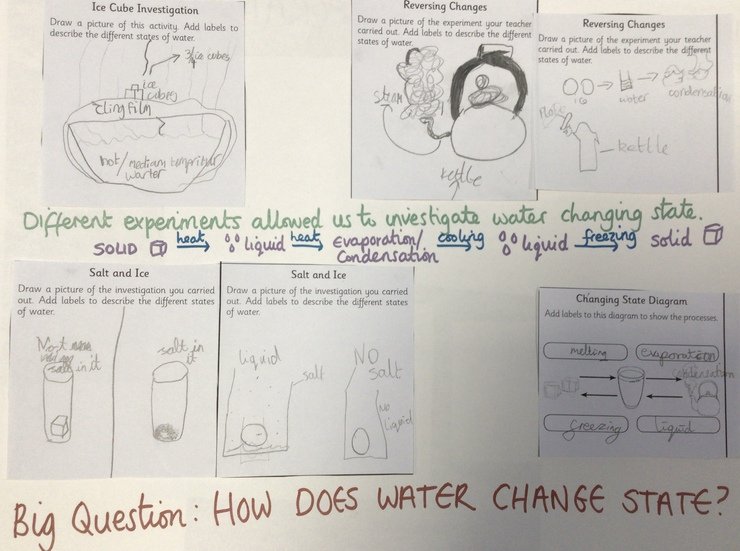 Ice Cube Investigation
Draw a picture of this activity. Add labels to
describe the different states of water.
3 ice cubes
ice
cubes
cling film
hot/medium tempritur
warter
Reversing Changes
Draw a picture of the experiment your teacher
carried out. Add labels to describe the different
states of water.
steam
kettle
Reversing Changes
Draw a picture of the experiment your teacher
carried out. Add labels to describe the different
states of water.
ice
water
condensation
kettle
Different experiments allowed us to investigate water changing state.
SOLID heat liquid heat Evaporation/ cooling liquid freezing solid
Condensation
Salt and Ice
Draw a picture of the investigation you carried
out. Add labels to describe the different states
of water.
Not
salt in it
salt in
it
Salt and Ice
Draw a picture of the investigation you carried
out. Add labels to describe the different states
of water.
liquid
salt
NO
salt
No
liquid
Changing State Diagram
Add labels to this diagram to show the processes.
melting
evaporation
condensation
freezing
liquid
Big Question: HOW DOES WATER CHANGE STATE?